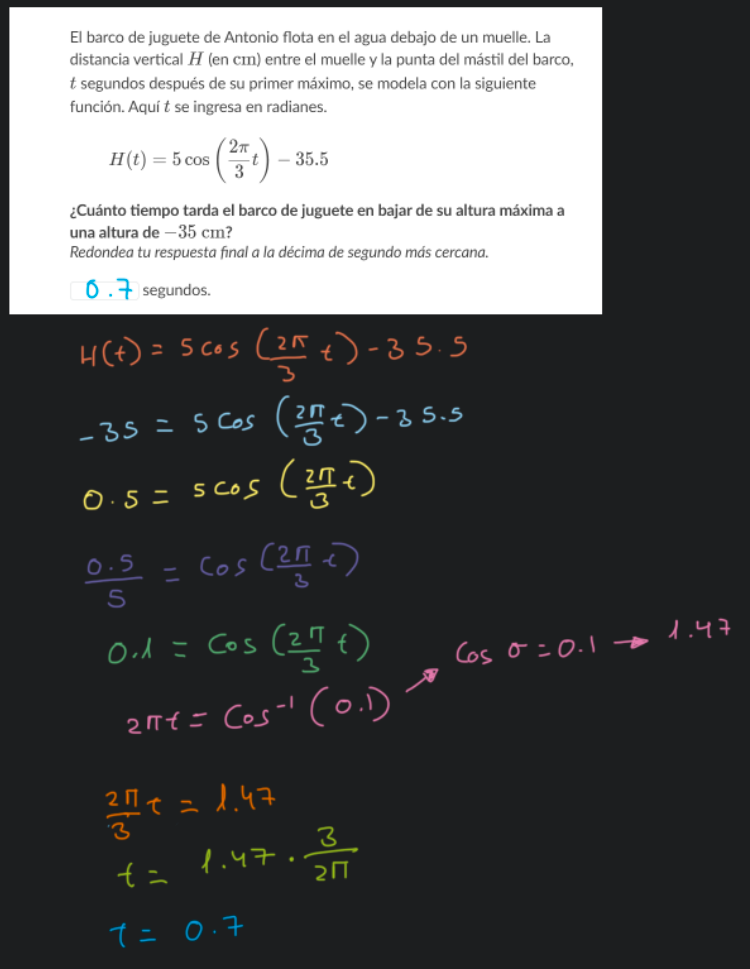 El barco de juguete de Antonio flota en el agua debajo de un muelle. La
distancia vertical H (en cm) entre el muelle y la punta del mástil del barco,
t segundos después de su primer máximo, se modela con la siguiente
función. Aquí t se ingresa en radianes.
H(t) = 5 cos (2π/3 t) − 35.5
¿Cuánto tiempo tarda el barco de juguete en bajar de su altura máxima a
una altura de −35 cm?
Redondea tu respuesta final a la décima de segundo más cercana.
0.7 segundos.
H(t) = 5 cos (2π/3 t) - 35.5
-35 = 5 cos (2π/3 t) - 35.5
0.5 = 5 cos (2π/3 t)
0.5/5 = cos (2π/3 t)
0.1 = cos (2π/3 t)
2πt = cos⁻¹ (0.1) → cos σ = 0.1 → 1.47
2π/3 t = 1.47
t = 1.47 · 3/2π
t = 0.7